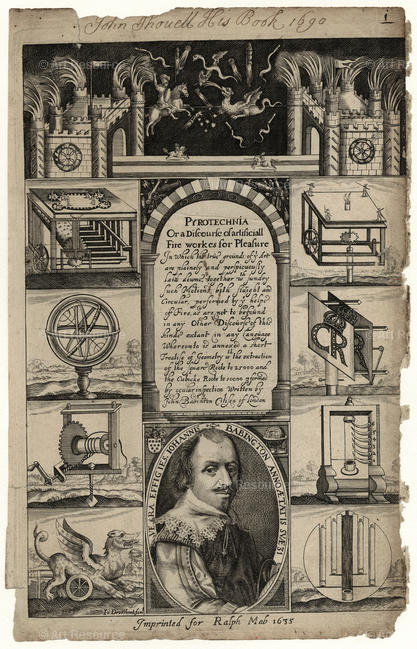 John Showell His Book 1690
1
PYROTECHNIA
Or a Discourse of artificiall
Fire workes for Pleasure
In which the true grounds of yt Art
are plainely and perspicuously
laid downe, together wth sundry
such Motions, both straight and
Circular, performed by ye helpe
of Fire, as are not to be found
in any Other Discourse of this
kinde extant in any Language
Whereunto is annexed a short
Treatise of Geometry wth the extraction
of the Square Roote to 25000 and
the Cubicke Roote to 10000
by ocular inspection Written by
John Babington Citizen of London
VERA EFFIGIES IOHANNIS BABINGTON ANNO ÆTATIS SVÆ 31
Io Droeshout sculp
Imprinted for Ralph Mab 1635
© Art Resource